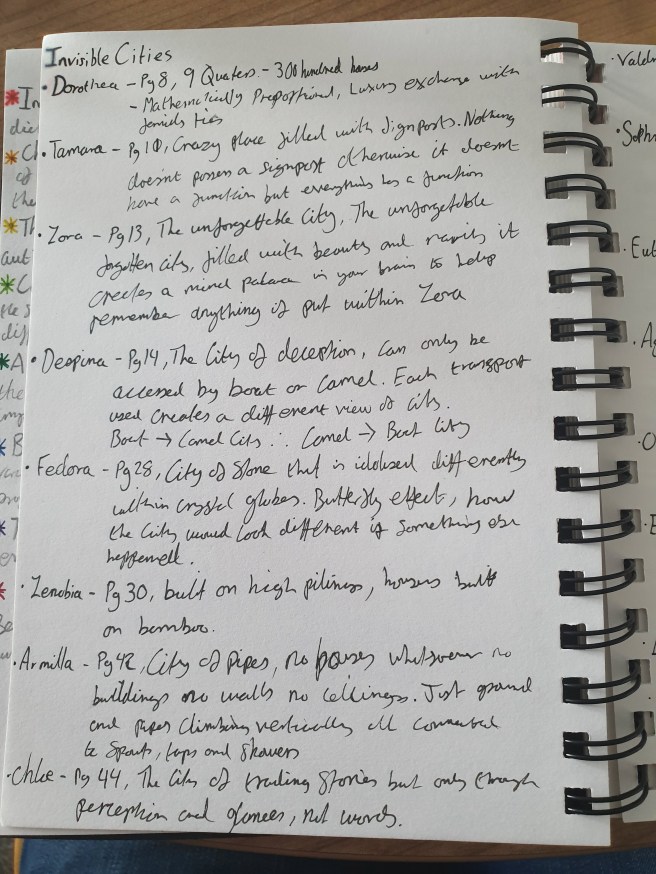 Invisible Cities
• Dorothea - Pg 8, 9 Quaters. - 300 hundred houses
- Mathematically Proportional, Luxury exchange with
family ties
Tamara - Pg 10, Crazy place filled with Signposts. Nothing
doesnt possess a signpost otherwise it doesnt
have a function but everything has a function
• Zora - Pg 13, The unforgettable City, The unforgetable
forgotten city, filled with beauty and rarity it
creates a mind palace in your brain to help
remember anything if put within Zora
• Despina - Pg 14, The City of deception, Can only be
accessed by boat or Camel. Each transport
used creates a different view of city.
Boat → Camel City ∴ Camel → Boat City
• Fedora - Pg 28, City of Stone that is idolised differently
within crystal globes. Butterfly effect, how
the City would look different if something else
happened.
• Zenobia - Pg 30, built on high pilings, houses built
on bamboo.
• Armilla - Pg 42, City of pipes, no houses whatsoever no
buildings no walls no ceilings. Just ground
and pipes Climbing vertically all connected
to Spouts, taps and showers
• Chloe - Pg 44, The City of trading Stories but only through
perception and glances, not words.
* In
die
* C
of
the
* Th
aut
* C
dif
* A
the
* B
* T
Valdr
• Soph
• Eut
• A
• O
• E